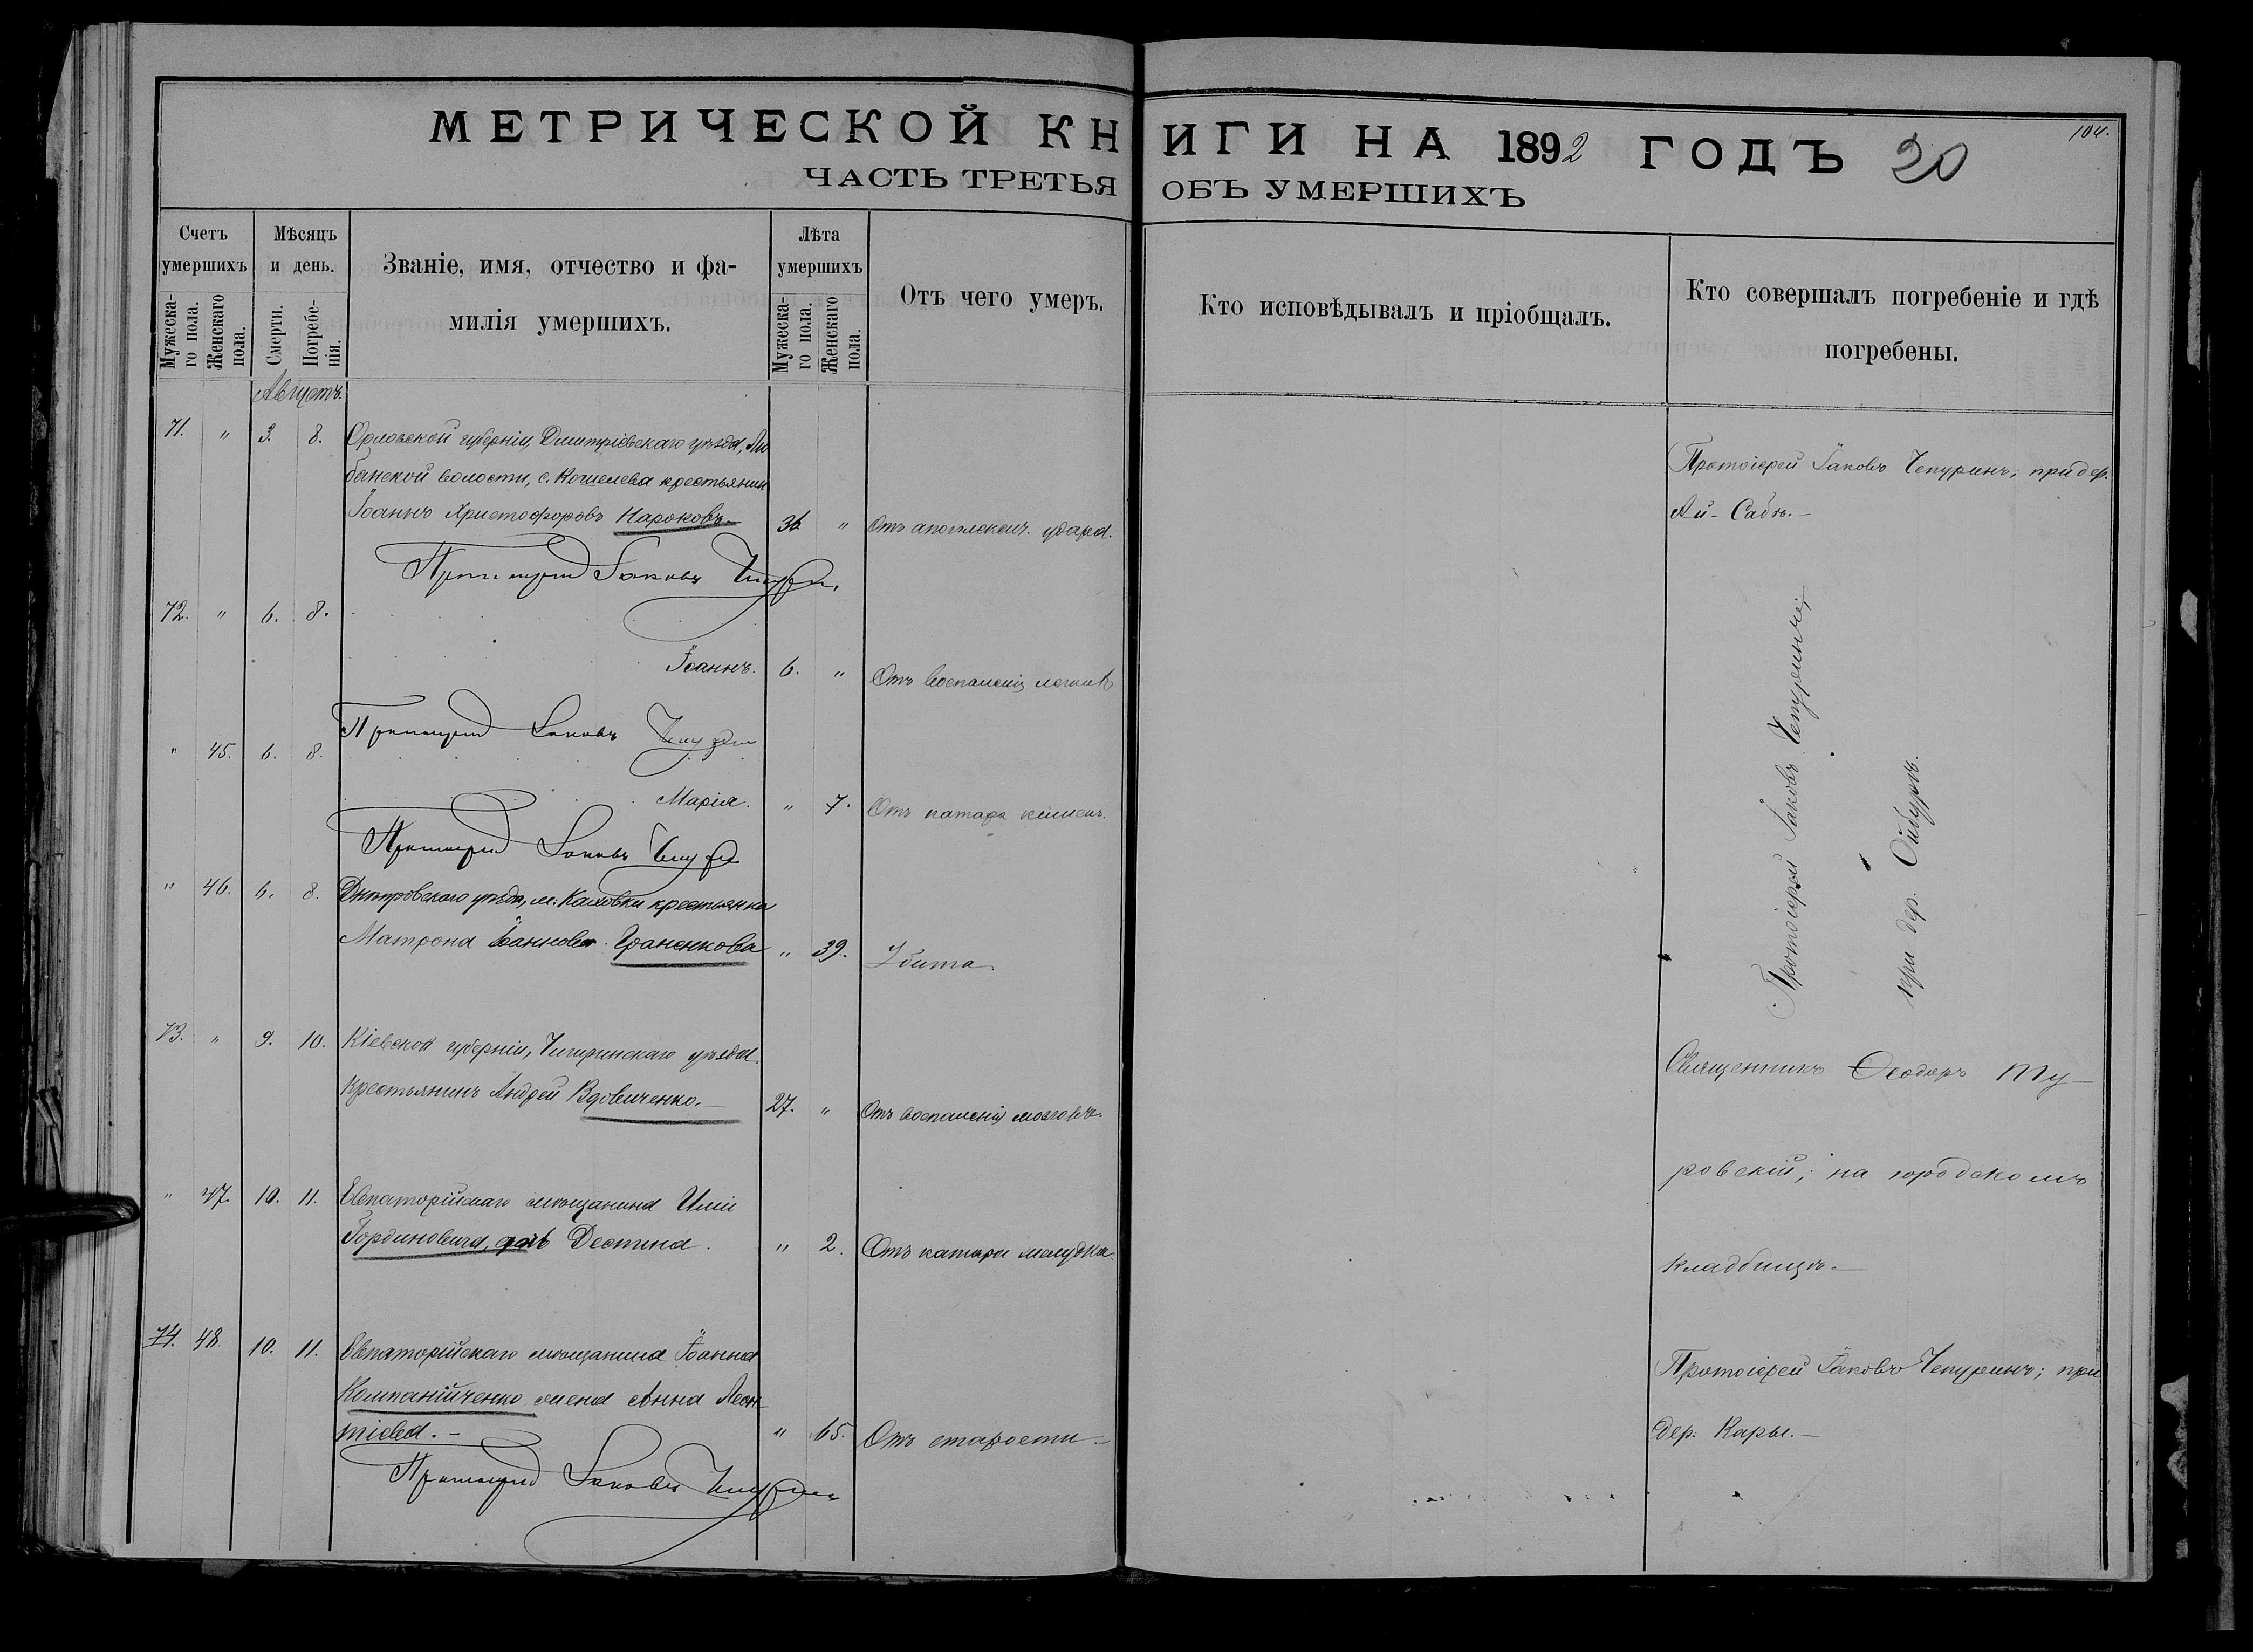 МЕТРИЧЕСКОЙ КНИГИ НА 1892 ГОДЪ 20
104.
ЧАСТЬ ТРЕТЬЯ ОБЪ УМЕРШИХЪ
Счетъ умершихъ
Мужеска-го пола.
Женскаго пола.
Мѣсяцъ и день.
Смерти.
Погребе-нія.
Званіе, имя, отчество и фа-
милія умершихъ.
Лѣта умершихъ
Мужеска-го пола.
Женскаго пола.
Отъ чего умеръ.
Кто исповѣдывалъ и пріобщалъ.
Кто совершалъ погребеніе и гдѣ
погребены.
Августъ.
71. " 3. 8. Орловской губерніи, Дмитріевскаго уѣзда,
банской волости, с. Кошелева крестьянин
Іоаннъ Христофоровъ Нароковъ. 36 " Отъ апоплексич. удара.
Протоіерей Іаковъ Чепуринъ; при дер.
Ай-Сабъ.
Протоіерей Іаковъ Чепурин
72. " 6. 8.
Іоаннъ. 6. " Отъ воспаленія легких
Протоіерей Іаковъ Чепурин
" 45. 6. 8.
Марія. " 7. Отъ катара кишекъ.
Протоіерей Іаковъ Чепурин
" 46. 6. 8. Днѣпровскаго уѣзда, м. Каховки крестьянка
Матрона Іоаннова Граненкова " 39. Убита.
Протоіерей Іаковъ Чепуринъ;
при дер. Ойбуръ.
73. " 9. 10. Кіевской губерніи, Чигиринскаго уѣзда
крестьянинъ Андрей Вдовиченко. 27. " Отъ воспаленія мозговъ.
Священникъ Ѳеодоръ Ту-
ровскій; на городскомъ
кладбищѣ.
" 47. 10. 11. Евпаторійскаго мѣщанина Иліи
Гординовича, дочь Дестина. " 2. Отъ катара желудка.
74. 48. 10. 11. Евпаторійскаго мѣщанина Іоанна
Компанійченко жена Анна Леон-
тіева. " 65. Отъ старости
Протоіерей Іаковъ Чепуринъ; при
дер. Кары.
Протоіерей Іаковъ Чепуринъ